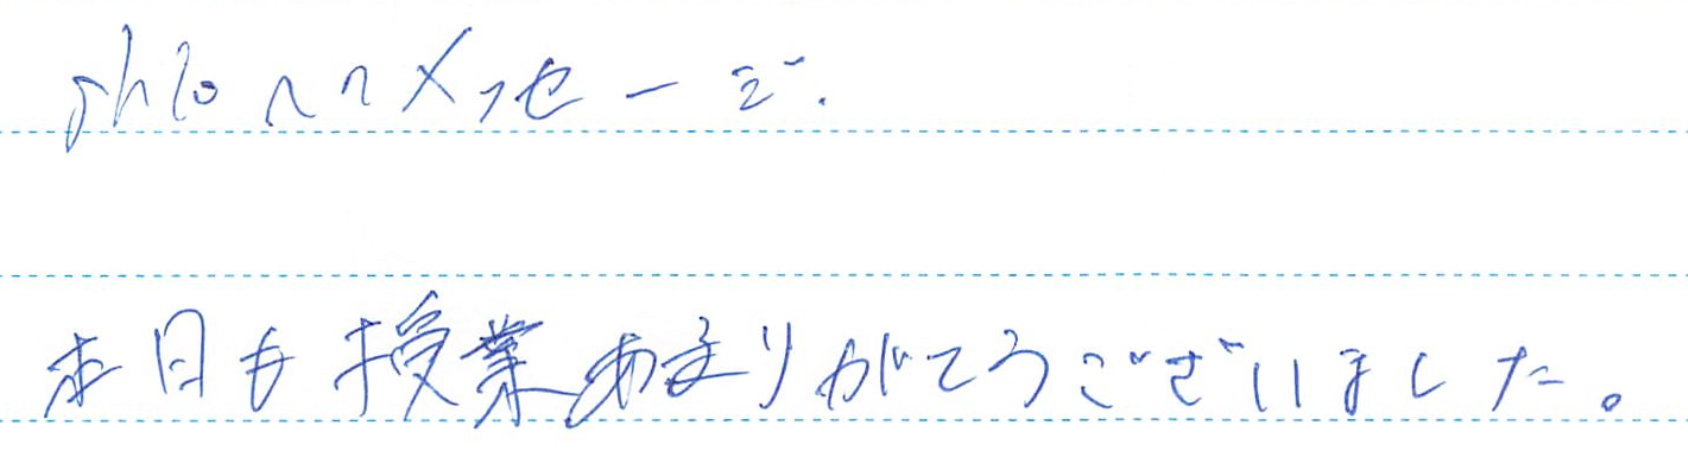 へのメッセージ.
本日も授業ありがとうございました。